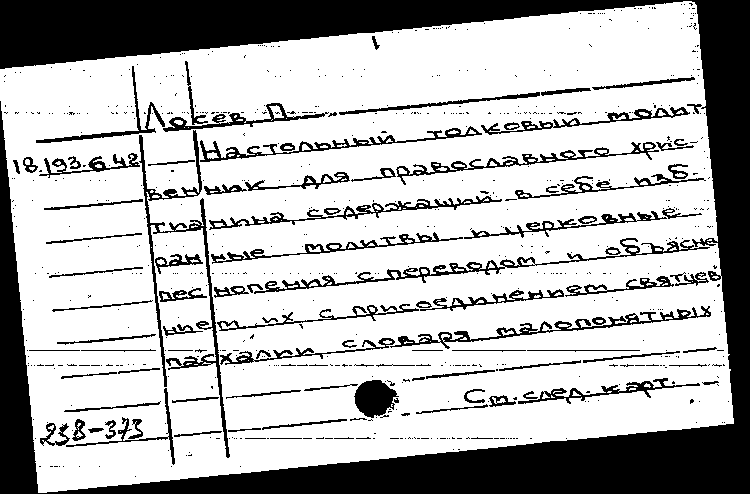 Лосев, П.
18.193.6.42 Настольный толковый молит-
венник для православного хрис-
тианина, содержащий в себе изб-
ранные молитвы и церковные
песнопения с переводом и объясне-
нием их, с присоединением святцев,
пасхалии, словаря малопонятных
См. след. карт.
238-373